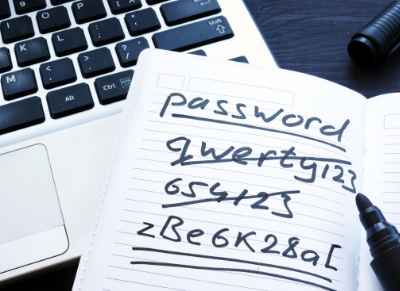 password
qwerty123
654123
zBe6K28a[
Shift
Alt
Ctrl
M
K
L